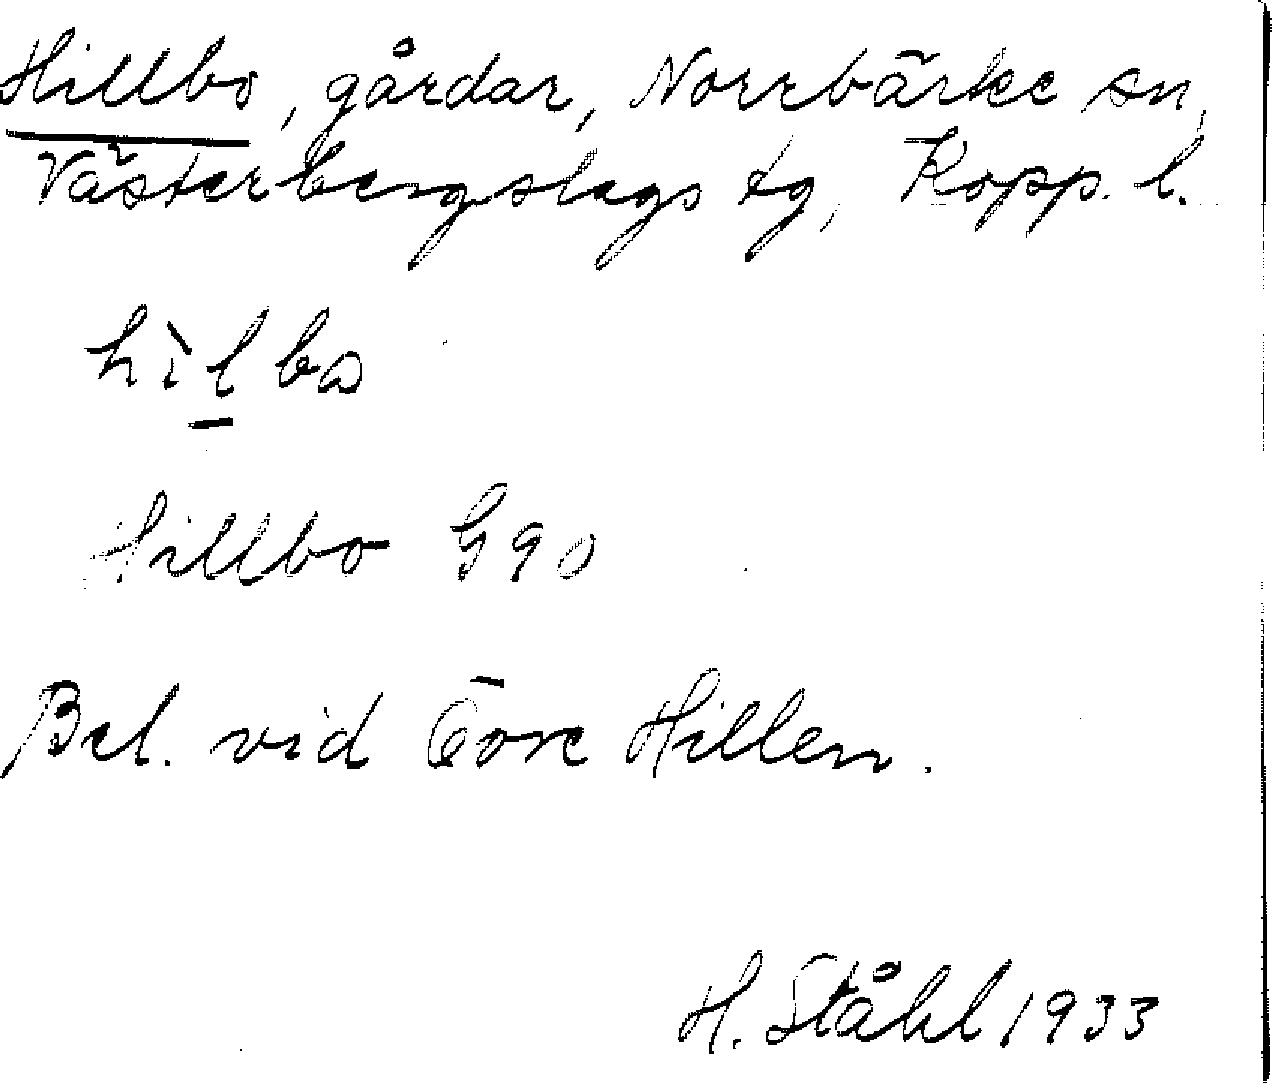 Hillbo, gårdar, Norrbärke sn,
Västerbergslags tg, Kopp. l.
hìlbo
Hillbo G90
Bel. vid Övre Hillen.
H. Ståhl 1933